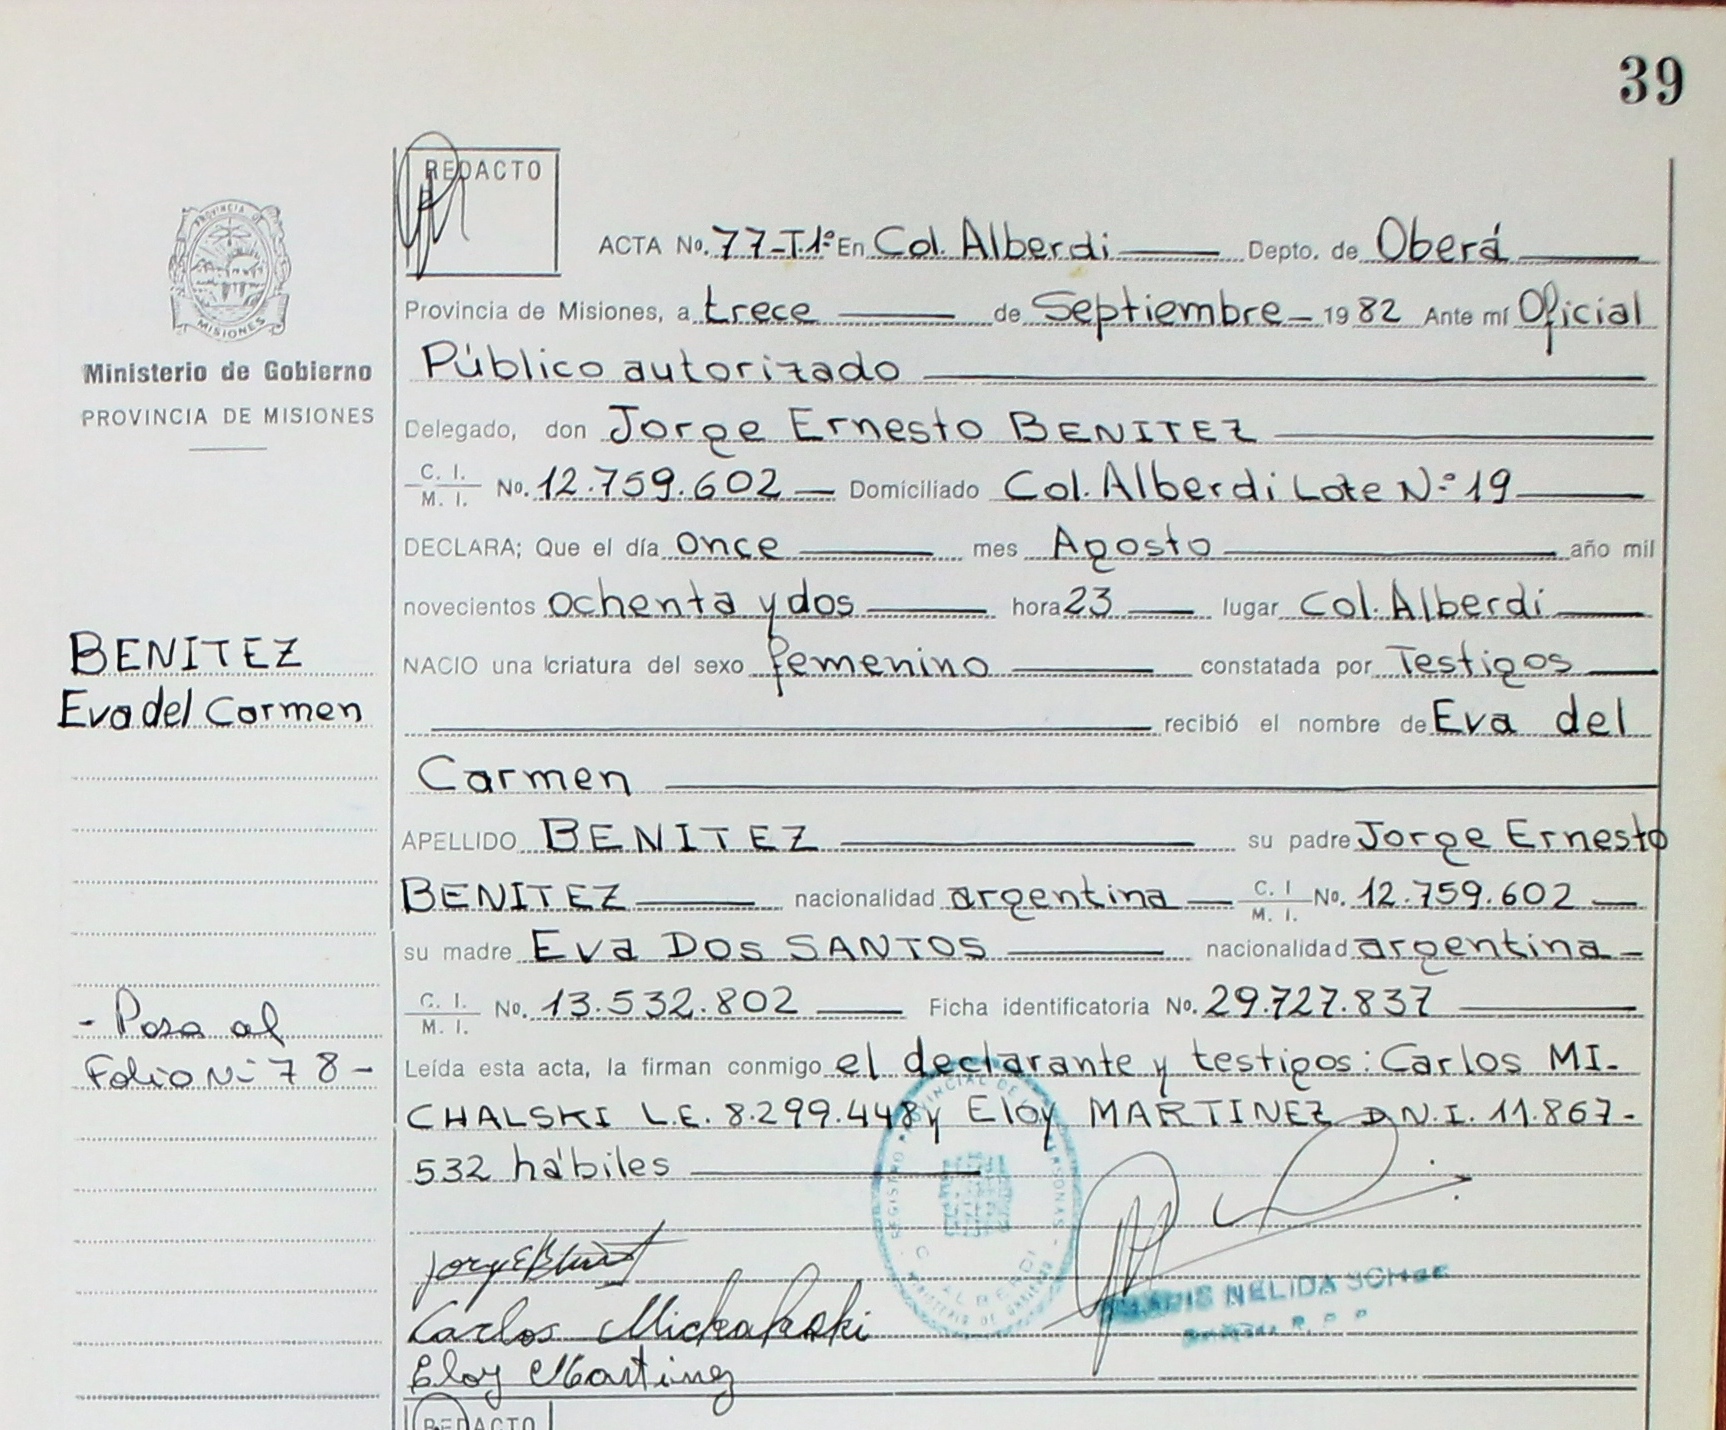 39
REDACTO
PROVINCIA DE
MISIONES
Ministerio de Gobierno
PROVINCIA DE MISIONES
ACTA No. 77-T.1º En Col. Alberdi Depto. de Oberá
Provincia de Misiones, a trece de Septiembre 1982 Ante mí Oficial
Público autorizado
Delegado, don Jorge Ernesto BENITEZ
C. I. M. I. No. 12.759.602 Domiciliado Col. Alberdi Lote Nº 19
DECLARA; Que el día once mes Agosto año mil
novecientos ochenta y dos hora 23 lugar Col. Alberdi
NACIO una criatura del sexo femenino constatada por Testigos
recibió el nombre de Eva del
Carmen
APELLIDO BENITEZ su padre Jorge Ernesto
BENITEZ nacionalidad argentina C. I M. I. No. 12.759.602
su madre Eva DOS SANTOS nacionalidad argentina
C. I. M. I. No. 13.532.802 Ficha identificatoria No. 29.727.837
Leída esta acta, la firman conmigo el declarante y testigos: Carlos MI-
CHALSKI L.E. 8.299.448 y Eloy MARTINEZ D.N.I. 11.867-
532 hábiles
BENITEZ
Eva del Carmen
- Pasa al
Folio Nº 78 -
REGISTRO PROVINCIAL DE LAS PERSONAS
ALBERDI
MINISTERIO DE GOBIERNO
Carlos Michalski
Eloy Martinez
NELIDA
R. P. P
REDACTO